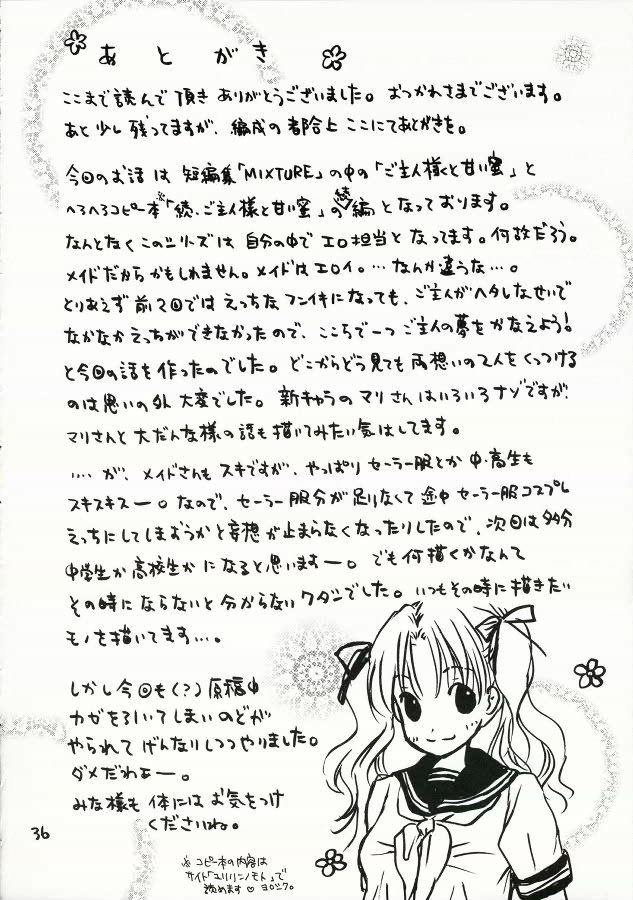 あとがき
ここまで読んで頂きありがとうございました。おつかれさまでございます。
あと少し残ってますが、編成の都合上ここにてあとがきを。
今回のお話は短編集「MIXTURE」の中の「ご主人様と甘い蜜」と
へろへろコピー本※「続・ご主人様と甘い蜜」の続編となっております。
なんとなくこのシリーズは自分の中でエロ担当となってます。何故だろう。
メイドだからかもしれません。メイドはエロイ。…なんか違うな…。
とりあえず前2回ではえっちなフンイキになっても、ご主人がヘタレなせいで
なかなかえっちができなかったので、ここらで一つご主人の夢をかなえよう!
と今回の話を作ったのでした。どこからどう見ても両想いの2人をくっつける
のは思いの外大変でした。新キャラのマリさんはいろいろナゾですが、
マリさんと大だんな様の話も描いてみたい気はしてます。
….が、メイドさんもスキですが、やっぱりセーラー服とか中・高生も
スキスキスー。なので、セーラー服分が足りなくて途中セーラー服コスプレ
えっちにしてしまおうかと妄想が止まらなくなったりしたので、次回は多分
中学生か高校生かになると思いますー。でも何描くかなんて
その時にならないと分からないワタシでした。いつもその時に描きたい
モノを描いてます…。
しかし今回も(?)原稿中
カゼをひいてしまいのどが
やられてげんなりしつつやりました。
ダメだわぁー。
みな様も体にはお気をつけ
くださいね。
※コピー本の内容は
サイト「ユリリンノもん」で
読めます♡ヨロシク。
36